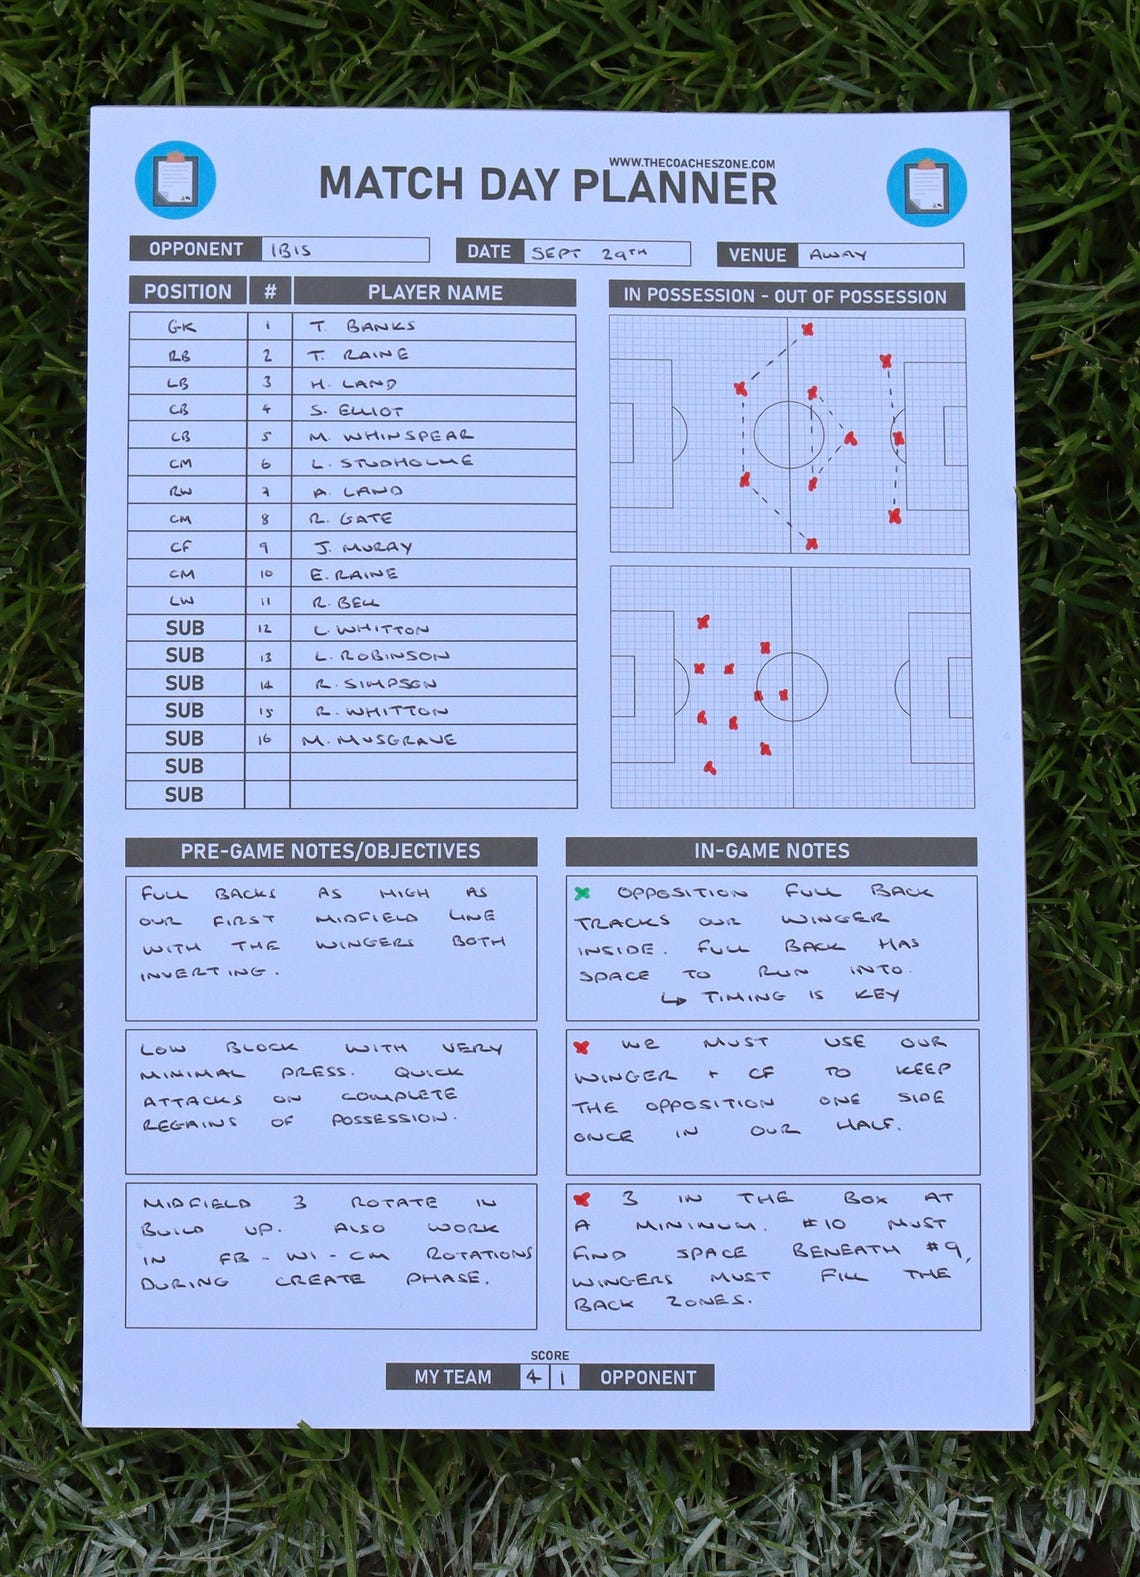 WWW.THECOACHESZONE.COM
MATCH DAY PLANNER
OPPONENT IBIS
DATE SEPT 29TH
VENUE AWAY
POSITION # PLAYER NAME
GK 1 T. BANKS
RB 2 T. RAINE
LB 3 H. LAND
CB 4 S. ELLIOT
CB 5 M. WHINSPEAR
CM 6 L. STUDHOLME
RW 7 A. LAND
CM 8 R. GATE
CF 9 J. MURAY
CM 10 E. RAINE
LW 11 R. BELL
SUB 12 L. WHITTON
SUB 13 L. ROBINSON
SUB 14 R. SIMPSON
SUB 15 R. WHITTON
SUB 16 M. MUSGRAVE
SUB
SUB
IN POSSESSION - OUT OF POSSESSION
PRE-GAME NOTES/OBJECTIVES
FULL BACKS AS HIGH AS
OUR FIRST MIDFIELD LINE
WITH THE WINGERS BOTH
INVERTING.
LOW BLOCK WITH VERY
MINIMAL PRESS. QUICK
ATTACKS ON COMPLETE
REGAINS OF POSSESSION.
MIDFIELD 3 ROTATE IN
BUILD UP. ALSO WORK
IN FB - WI - CM ROTATIONS
DURING CREATE PHASE.
IN-GAME NOTES
x OPPOSITION FULL BACK
TRACKS OUR WINGER
INSIDE. FULL BACK HAS
SPACE TO RUN INTO.
↳ TIMING IS KEY
x WE MUST USE OUR
WINGER + CF TO KEEP
THE OPPOSITION ONE SIDE
ONCE IN OUR HALF.
x 3 IN THE BOX AT
A MINIMUM. #10 MUST
FIND SPACE BENEATH #9,
WINGERS MUST FILL THE
BACK ZONES.
SCORE
MY TEAM 4 1 OPPONENT